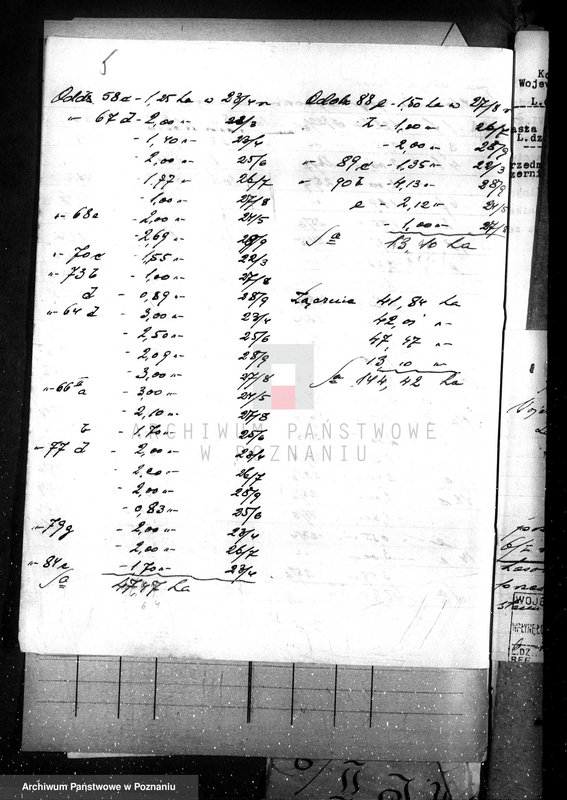 Archiwum Państwowe w Poznaniu
5
Oddz. 58c - 1,25 ha w 23/4 r
„ 67 d - 2,00 „ 22/3
- 1,40 „ 23/4
- 2,00 „ 25/6
- 1,77 „ 26/7
- 1,00 „ 27/8
„ 68a - 2,00 „ 24/5
- 2,69 „ 28/9
„ 70c - 1,55 „ 22/3
„ 73 b - 1,00 „ 27/8
d - 0,89 „ 28/9
„ 64 d - 3,00 „ 23/4
- 2,50 „ 25/6
- 2,09 „ 28/9
- 3,00 „ 27/8
„ 66 a - 3,00 „ 24/5
- 2,10 „ 27/8
b - 1,70 „ 25/6
„ 77 d - 2,00 „ 23/4
- 2,00 „ 26/7
- 2,00 „ 28/9
- 0,83 „ 25/6
„ 79g - 2,00 „ 23/4
- 2,00 „ 26/7
„ 84c - 1,70 „ 23/4
Sa 47,47 ha
64
Oddz. 88 c - 1,50 ha w 27/8 r
- 1,00 „ 26/7
- 2,00 „ 28/9
„ 89c - 1,35 „ 22/3
„ 90b - 4,13 „ 28/9
c - 2,12 „ 24/5
- 1,00 „ 27/8
Sa 13,10 ha
Łącznie 41,84 ha
42,01 „
47,47 „
13,10 „
Sa 144,42 ha
ARCHIWUM PAŃSTWOWE
W POZNANIU
L.dz
WOJE
L.DZ
Archiwum Państwowe w Poznaniu